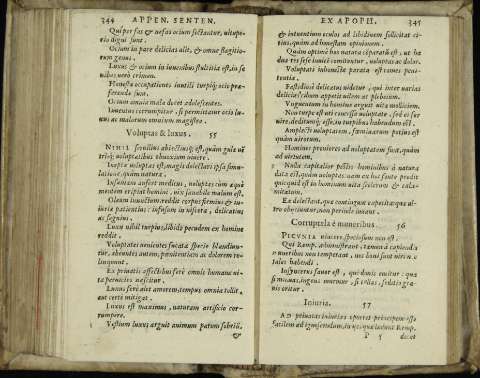 344 APPEN. SENTEN.
Qui per fas & nefas ocium sectantur, vitupe-
rio digni sunt.
Ocium in pace delicias alit, & omne flagitio-
rum genus.
Luxus & ocium in iuuenibus stultitia est, in se
nibus verò crimen.
Honestæ occupationes inutili turpiq; ocio præ-
ferendæ sunt.
Ocium omnia mala docet adolescentes.
Iuuentus corrumpitur, si permittatur ocio lu-
xus ac malorum omnium magistra.
Voluptas & luxus. 55
NIHIL seruilius abiectiusq; est, quàm gulæ ve
voluptatibus obnoxium viuere.
Inepta voluptas est, magis delectari ipsa simu-
latione, quàm natura.
Insaniam aufert medicus, voluptas
mentem eripit homini, vix sanabile malum est.
Oleum inunctum reddit corpus firmius & in-
iuriæ patientius: infusum in viscera, delicatius
ac segnius.
Luxu nihil turpius, libido pecudem ex homine
reddit.
Voluptates venientes fucata specie blandiun-
tur, abeuntes autem, pœnitentiam ac dolorem re-
linquunt.
Ex prauatis affectibus ferè omnis humanæ vi-
tæ pernicies nascitur.
Luxus ferè aut amorem, tempus omnia tollit,
aut certè mitigat.
Luxus est maximus, naturam artificio cor-
rumpere.
Vestium luxus arguit animum parùm sobriũ,
&
EX APOPH. 345
& intuentium oculos ad libidinem sollicitat ci-
tius, quàm ad honestam opinionem.
Quàm optimè hæc natura cõparata est, vt ha-
rum res sese inuicẽ comitentur, voluptas ac dolor.
Voluptati inhonestæ parata est comes pœni-
tentia.
Fastidiosi delicatus videtur, qui inter varias
delicias vilium appetit vilem ac plebeium.
Vnguentum in homine arguit vitæ mollitiem.
Non turpe est vti concessa voluptate, sed ei ser
uire, deditumq; esse, in turpibus habendum est.
Amplecti voluptatem, fœminarum potius est
quàm virorum.
Homines proniores ad voluptatem sunt, quàm
ad virtutem.
Nulla capitalior pestis hominibus à natura
data est, quàm voluptas: nam ex hoc fonte prodit
quicquid est in hominum vita scelerum & cala-
mitatum.
Ea delectant, quæ contingunt: capiatque al-
tro obueniunt, non perinde iuuant.
Corruptela è muneribus. 56
PECVNIA vincere speciosum non est.
Qui Remp. administrant, tam malè capiendis
muneribus non temperant, vix boni sunt viri
tales habendi.
Ingruens fauet ei, qui donis excitur: quæ
si minuas, ingens murmur, si tollas, seditio gra-
uis oritur.
Iniuria. 57
AD priuatas iniurias oportet principem esse
facilem ad ignoscendum, in ijs quæ lædunt Remp.
Y 5 decet